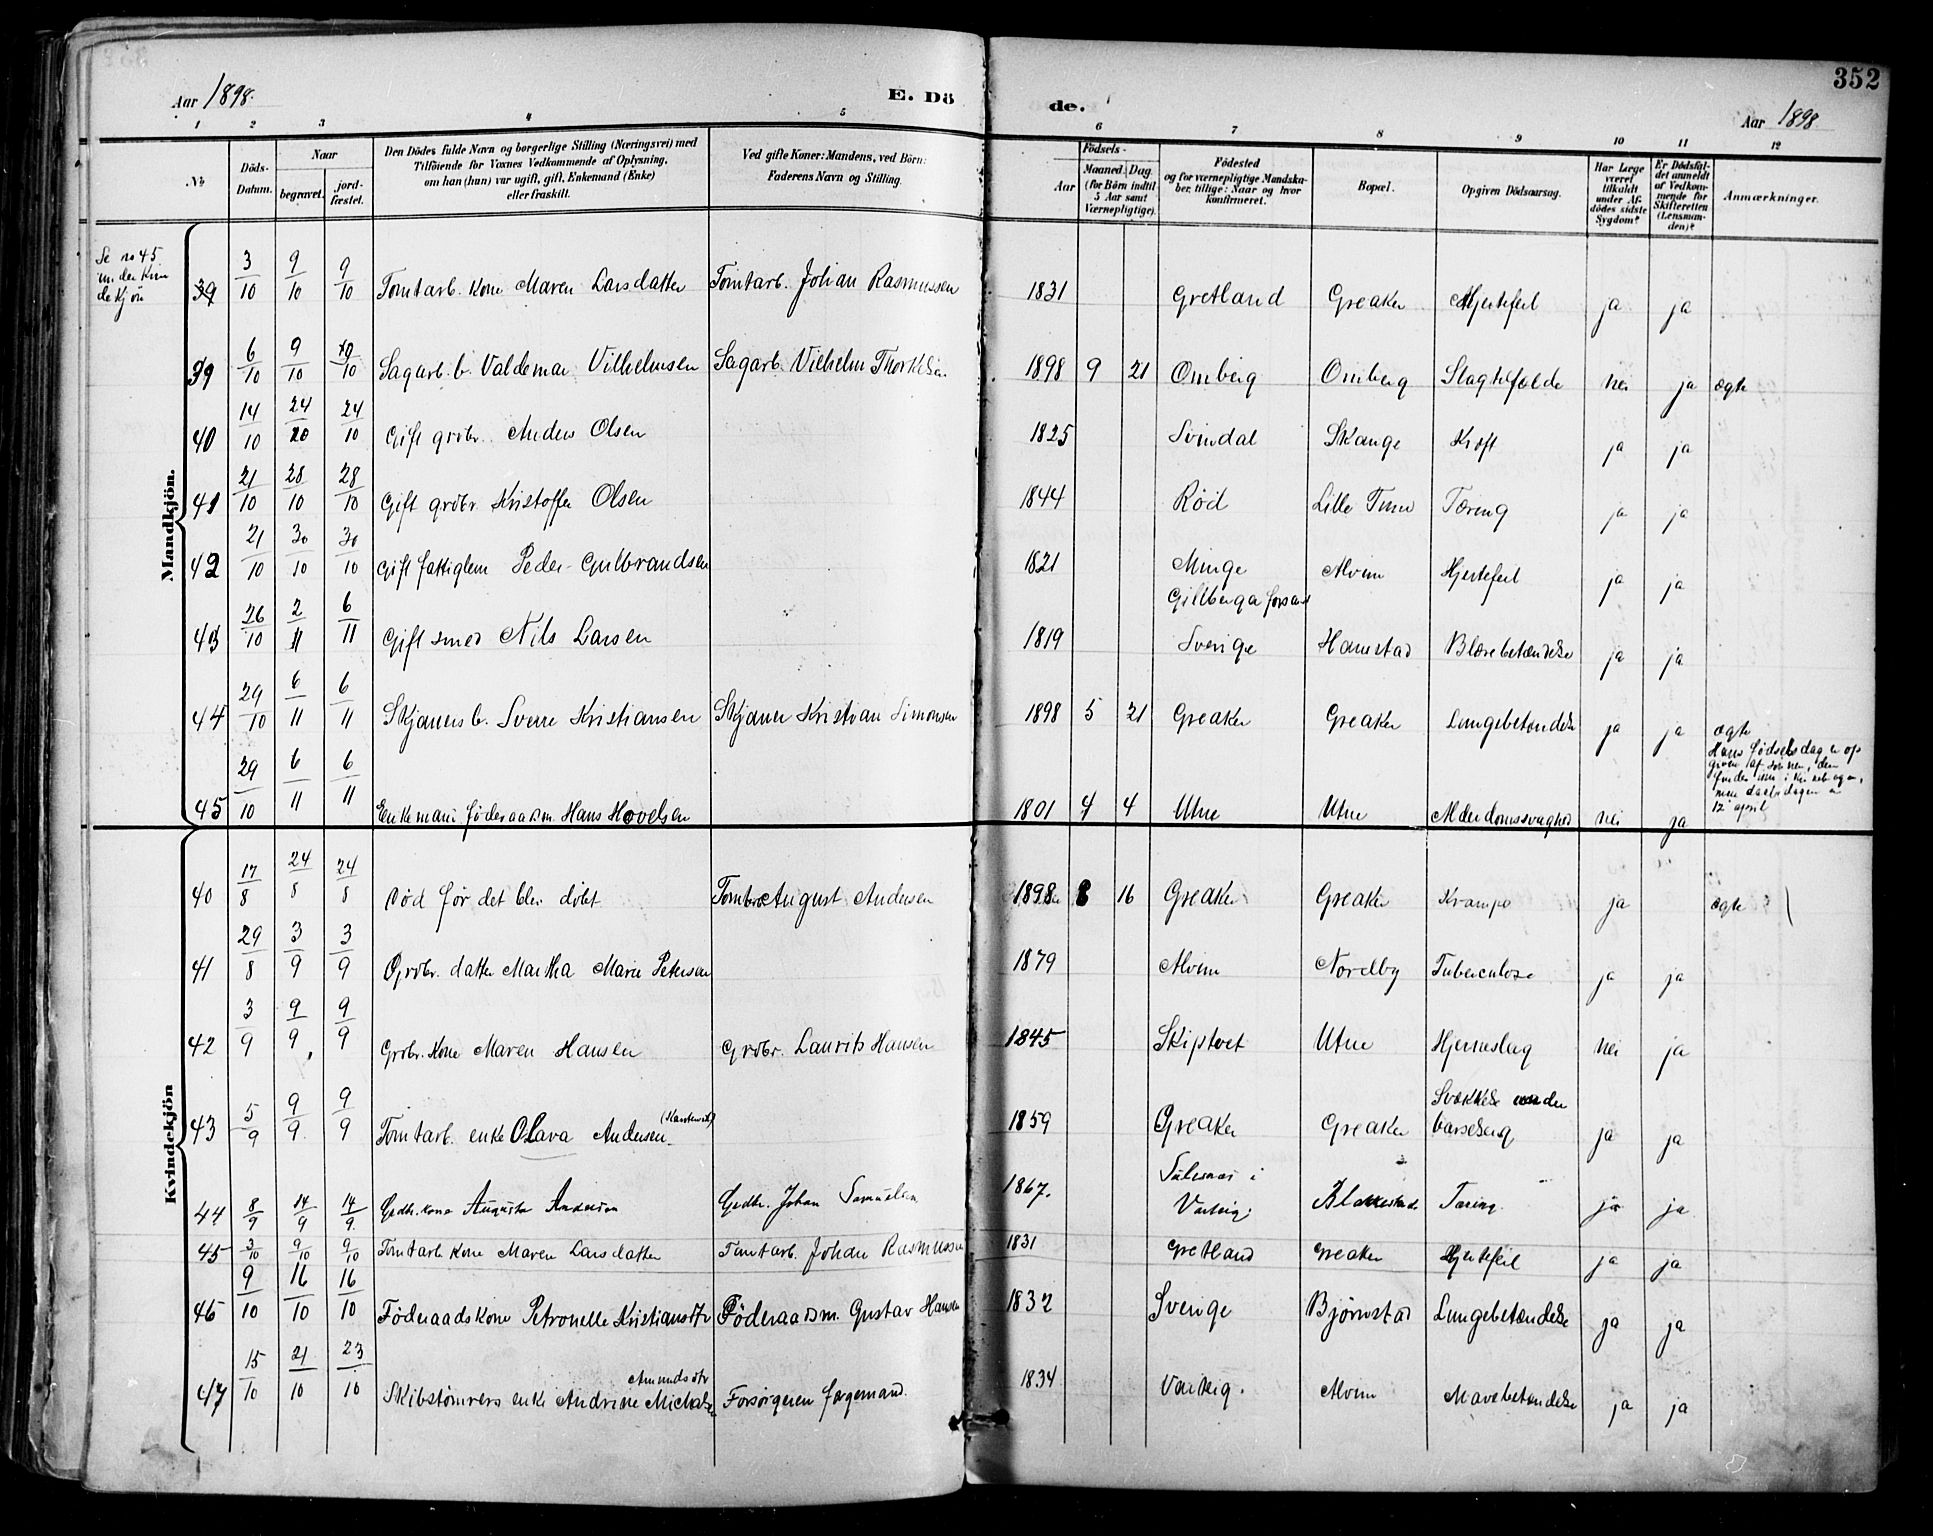 352
Aar 1898.
E. Döde.
Aar 1898
1 2 3 4 5 6 7 8 9 10 11 12
No.
Döds-Datum.
Naar
begravet.
jord-fæstet.
Den Dödes fulde Navn og borgerlige Stilling (Næringsvei) med
Tilföiende for Voxnes Vedkommende af Oplysning,
om han (hun) var ugift, gift, Enkemand (Enke)
eller fraskilt.
Ved gifte Koner: Mandens, ved Börn:
Faderens Navn og Stilling.
Födsels-
Aar
Maaned. Dag.
(for Börn indtil
5 Aar samt
Værnepligtige).
Födested
og for værnepligtige Mandska-
ber, tillige: Naar og hvor
konfirmeret.
Bopæl.
Opgiven Dödsaarsag.
Har Læge
været
tilkaldt
under Af-
dödes sidste
Sygdom?
Er Dödsfal-
det anmeldt
af Vedkom-
mende for
Skifteretten
(Lensman-
den)?
Anmærkninger.
Mandkjön.
Se no 45
under Kvin
dekjön
39 3/10 9/10 9/10 Tomtarb. Kone Maren Larsdatter Tomtarb. Johan Rasmussen 1831 Gretland Greaker Hjertefeil ja ja
39 6/10 9/10 10/10 Sagarb. b. Valdemar Vilhelmsen Sagarb. Vilhelm Thorkelsen 1898 9 21 Omberg Omberg Slagtilfælde nei ja ægte
40 14/10 24/10 24/10 Gift grdbr. Anders Olsen 1825 Svindal Skauge Kræft ja ja
41 21/10 28/10 28/10 Gift grdbr. Kristoffer Olsen 1844 Rød Lille Tune Tæring ja ja
42 21/10 30/10 30/10 Gift fattiglem Peder Gulbrandsen 1821 Minge Alvim Hjertefeil ja ja
43 26/10 2/11 6/11 Gift smed Nils Larsen 1819 Gillberga forsaml Sverige Hanestad Blærebetændelse ja ja
44 29/10 6/11 6/11 Skjauers b. Sverre Kristiansen Skjauer Kristian Simonsen 1898 5 21 Greaker Greaker Lungebetændelse ja ja ægte
45 29/10 6/11 6/11 Enkemand föderaadsm. Hans Hovelsen 1801 4 4 Utne Utne Alderdomssvaghed nei ja
Hans fødselsdag er op
given af sønnen, den
findes ikke i
men daabsdagen er
12 april
Kvindekjön
40 17/8 24/8 24/8 Död før det blev döbt Tomtarb August Andersen 1898 8 16 Greaker Greaker Krampe ja ægte
41 29/8 3/9 3/9 Grdbr. datter Martha Marie Petersen 1879 Alvim Nordby Tuberculose ja ja
42 3/9 9/9 9/9 Grdbr. Kone Maren Hansen Grdbr. Laurits Hansen 1845 Skiptvet Utne Hjerneslag nei ja
43 5/9 9/9 9/9 Tomtarb. enke Olava Andersen 1859 Greaker Greaker Svækkelse under barselseng ja ja
44 8/9 14/9 14/9 Grdbr. kone Augusta Anderson Grdbr. Johan Samuelsen 1867. i Varteig. Tæring. ja ja
45 3/10 9/10 9/10 Tomtarb Kone Maren Larsdatter Tomtarb. Johan Rasmussen 1831 Gretland Greaker Hjertefeil ja ja
46 9/10 16/10 16/10 Föderaadskone Petronelle Kristiansdtr Föderaadsm. Gustav Hansen 1832 Sverige Bjørnstad Lungebetændelse ja ja
47 15/10 21/10 23/10 Skibstømrers enke Andrine Michelsen Amundsdtr Forsørgeren færgemand. 1834 Varteig. Alvim Mavebetændelse ja ja